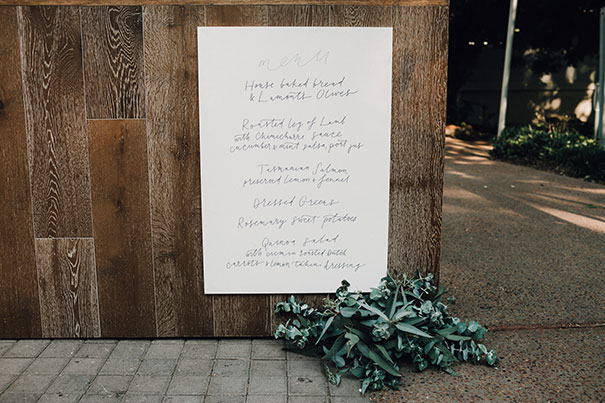 menu
House baked bread
& Lamonts Olives
Roasted leg of Lamb
with Chimichurri sauce
cucumber & mint salsa, port jus
Tasmanian Salmon
preserved lemon & fennel
Dressed Greens
Rosemary sweet potatoes
Quinoa Salad
with cumin roasted Dutch
carrots & lemon tahini dressing